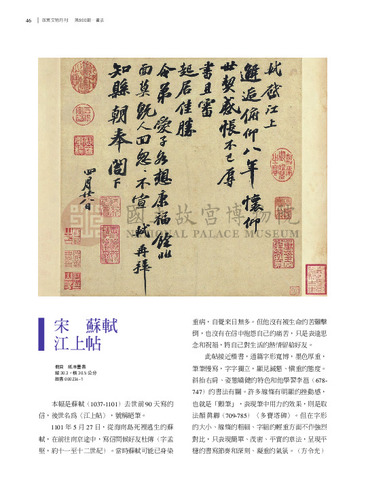 46
軾啟江上
邂逅俯仰八年懷仰
世契感悵不已辱
書且審
起居佳勝
令弟愛子各想康福餘非
面莫既人回怱怱不宣軾再拜
知縣朝奉閣下
四月廿八日
國立故宮博物院
NATIONAL PALACE MUSEUM
宋 蘇軾
江上帖
本幅是蘇軾(1037-1101)去世前90天寫的
信,後世名為〈江上帖〉,號稱絕筆。
1101年5月27日,從海南島死裡逃生的蘇
軾,在前往南京途中,寫信問候好友杜傳(字孟
堅,約十一至十二世紀)。當時蘇軾可能已身染
重病,自覺來日無多。但他沒有被生命的苦難擊
倒,也沒有在信中抱怨自己的痛苦,只是表達思
念和祝福,將自己對生活的熱情留給好友。
此帖接近楷書,通篇字形寬博,墨色厚重,
筆筆慢寫,字字獨立,顯見緘懇、慎重的態度。
斜抬右肩、姿態敧側的特色和他學習李邕(678-
747)的書法有關。許多線條有明顯的挫動感,
也就是「顫筆」,表現筆中用力的效果,則是取
法顏真卿(709-785)〈多寶塔碑〉。但在字形
的大小、線條的粗細、字組的輕重方面不作強烈
對比,只表現簡單、茂密、平實的意味,呈現平
穩的書寫節奏和深刻、凝重的氣氛。(方令光)